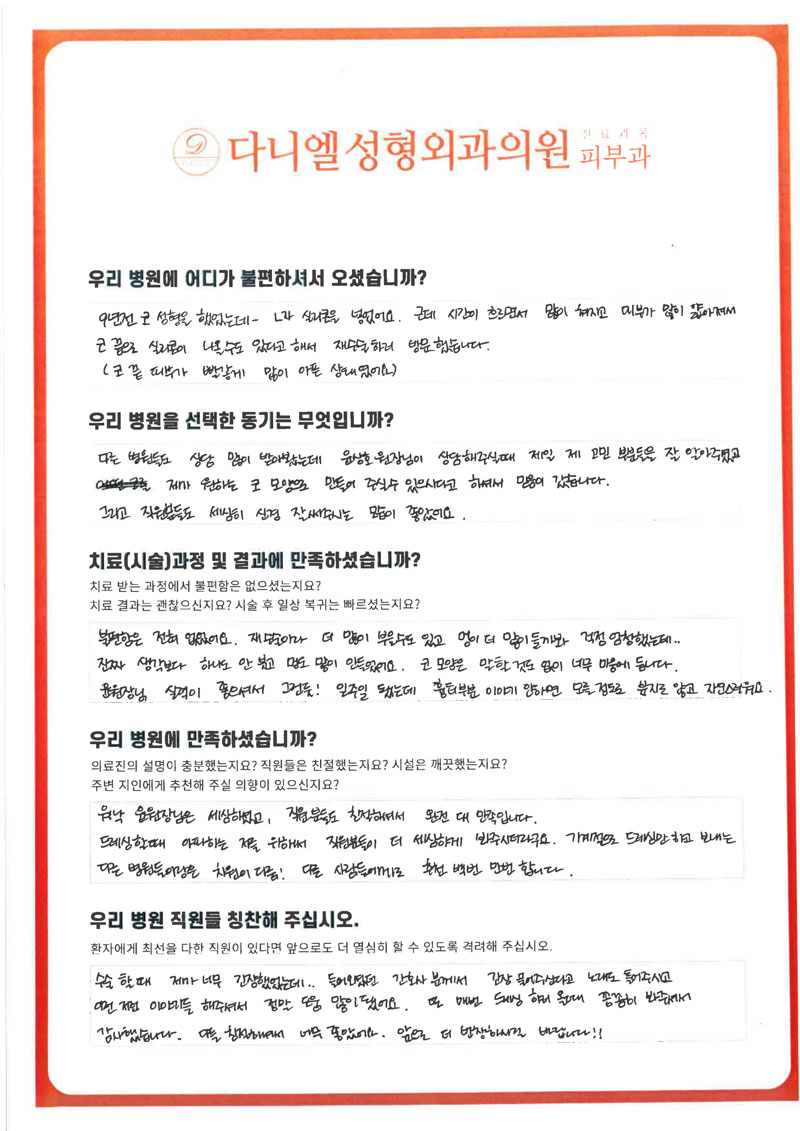 다니엘성형외과의원 진료과목 피부과
우리 병원에 어디가 불편하셔서 오셨습니까?
9년전 코 성형을 했었는데~ L자 실리콘을 넣었어요. 근데 시간이 흐르면서 많이 쳐지고 피부가 많이 얇아져서
코 끝으로 실리콘이 나올수도 있다고 해서 재수술하러 방문했습니다.
(코 끝 피부가 빨갛게 많이 아픈 상태였어요)
우리 병원을 선택한 동기는 무엇입니까?
다른 병원들도 상담 많이 받아봤는데 윤상호 원장님이 상담해주실때 제일 제 고민 부분들을 잘 알아주셨고
제가 원하는 코 모양으로 만들어 주실수 있으시다고 하셔서 믿음이 갔습니다.
그리고 직원분들도 세심히 신경 잘써주시는 모습이 좋았어요.
치료(시술)과정 및 결과에 만족하셨습니까?
치료 받는 과정에서 불편함은 없으셨는지요?
치료 결과는 괜찮으신지요? 시술 후 일상 복귀는 빠르셨는지요?
불편함은 전혀 없었어요. 재수술이라 더 많이 부을수도 있고 멍이 더 많이들까봐 걱정 엄청했는데..
진짜 생각보다 하나도 안 붓고 멍도 많이 안들었어요. 코 모양은 말할것도 없이 너무 마음에 듭니다.
윤원장님 실력이 좋으셔서 그런듯! 일주일 됐는데 흉터부분 이야기 안하면 모를정도로 붉지도 않고 자연스러워요.
우리 병원에 만족하셨습니까?
의료진의 설명이 충분했는지요? 직원들은 친절했는지요? 시설은 깨끗했는지요?
주변 지인에게 추천해 주실 의향이 있으신지요?
워낙 윤원장님은 세심하셨고, 직원분들도 친절하셔서 완전 대 만족입니다.
드레싱할때 아파하는 저를 위해서 직원분들이 더 세심하게 봐주시더라구요. 기계적으로 드레싱만 하고 보내는
다른 병원들이랑은 차원이 다름! 다른 사람들에게도 추천 백번 만번 합니다.
우리 병원 직원들 칭찬해 주십시오.
환자에게 최선을 다한 직원이 있다면 앞으로도 더 열심히 할 수 있도록 격려해 주십시오.
수술 할때 제가 너무 긴장했었는데.. 들어오셨던 간호사 분께서 긴장 풀어주신다고 노래도 틀어주시고
이런 저런 이야기들 해주셔서 정말 도움 많이 됐어요. 또 매번 드레싱 하러 올때 꼼꼼히 봐주셔서
감사했습니다. 다들 친절하셔서 너무 좋았어요. 앞으로 더 번창하시길 바랍니다!!